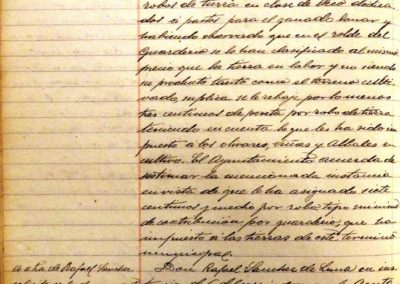 robos de tierra en clase de seco dedica-
dos á pastos para el ganado lanar y
habiendo observado que en el rolde del
Guarderio se le han clasificado al mismo
precio que la tierra en labor y no siendo
su producto tanto como el terreno culti-
vado, suplica se le rebaje por lo menos
tres centimos de peseta por robo de tierra
teniendo en cuenta lo que les ha sido im-
puesto á los olivares, viñas y
cultivo. El Ayuntamiento acuerda de-
sestimar la mencionada instancia
en vista de que le ha asignado siete
centimos y medio por robo, tipo minimo
de contribucion por guarderio que ha
impuesto á las tierras de este termino
municipal.
de Rafael Sanchez
Don Rafael Sanchez de Luna en ins-